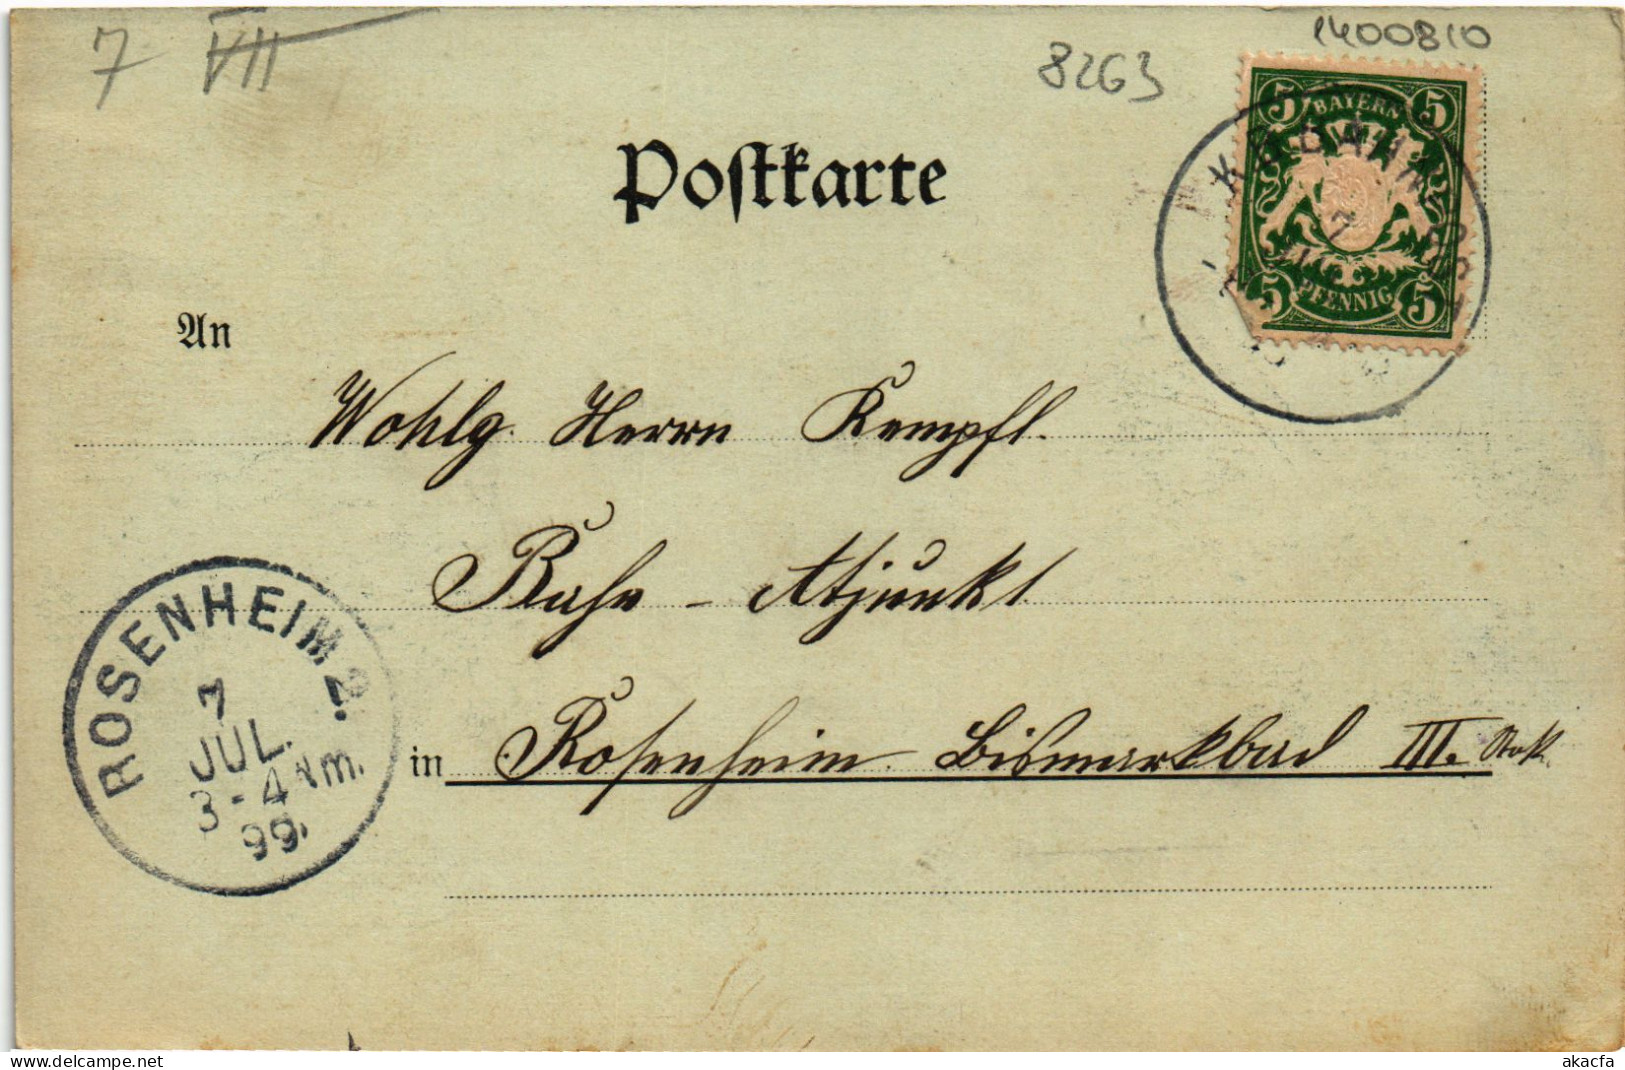 7 VII
8263
1400810
Postkarte
5 BAYERN 5
7
5 PFENNIG 5
An
Wohlg. Herrn Kempfl.
Bahn - Adjunkt
in Rosenheim Bismarkbad III. Stock
ROSENHEIM 2.
7
JUL.
3-4 Nm.
99.
delcampe.net
akacfa